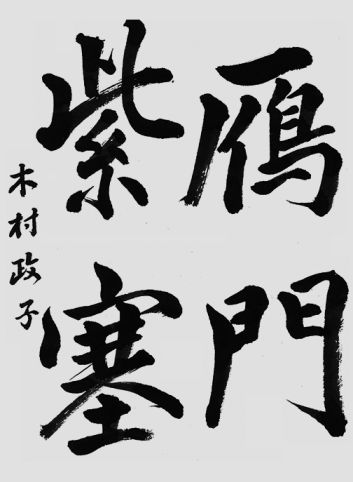 鴈門
紫塞
木村政子